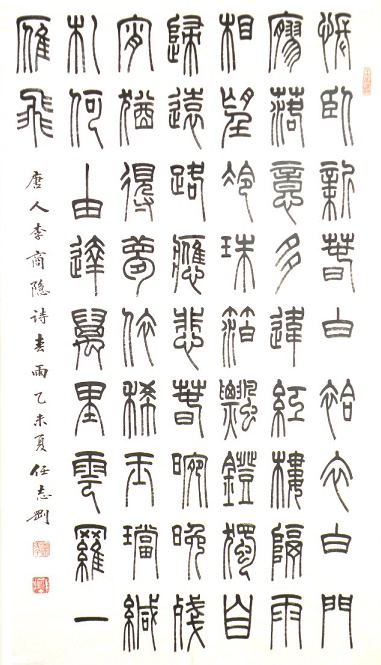 悵臥新春白袷衣白門
寥落意多違紅樓隔雨
相望冷珠箔飄鐙獨自
歸遠路應悲春晼晚殘
宵猶得夢依稀玉璫緘
札何由達萬里雲羅一
雁飛
唐人李商隐詩春雨乙未夏任志剛